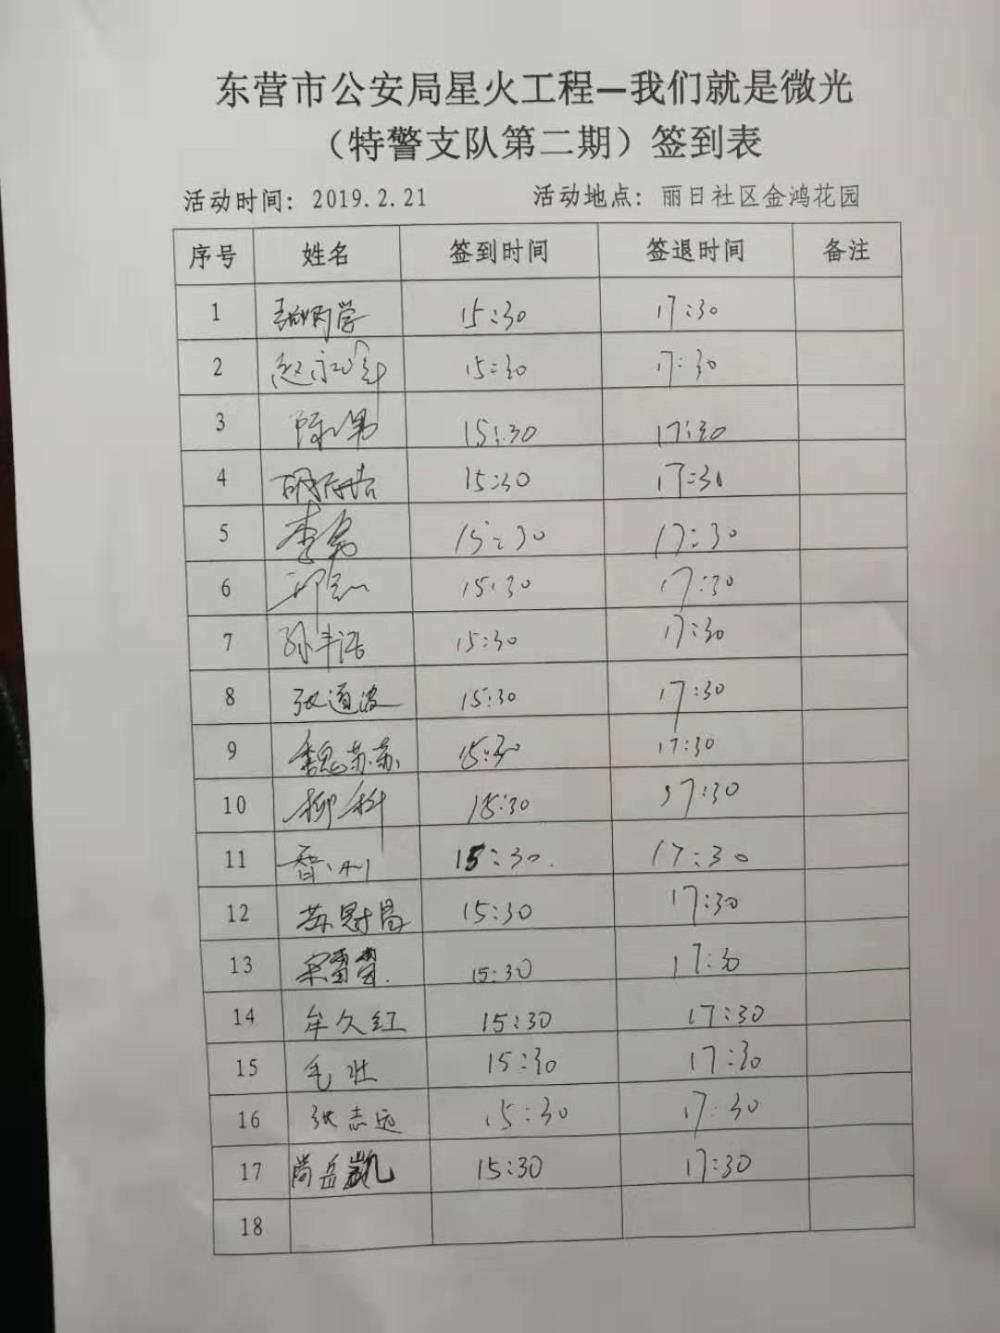 东营市公安局星火工程—我们就是微光
（特警支队第二期）签到表
活动时间：2019.2.21 活动地点：丽日社区金鸿花园
序号 姓名 签到时间 签退时间 备注
1 15:30 17:30
2 赵 15:30 17:30
3 陈 15:30 17:30
4 15:30 17:30
5 李 15:30 17:30
6 15:30 17:30
7 孙丰浩 15:30 17:30
8 张道波 15:30 17:30
9 魏苏苏 15:30 17:30
10 柳科 15:30 17:30
11 15:30. 17:30
12 苏冠昌 15:30 17:30
13 宋雷雷 15:30 17:30
14 牟久红 15:30 17:30
15 毛壮 15:30 17:30
16 张志远 15:30 17:30
17 尚岳凯 15:30 17:30
18